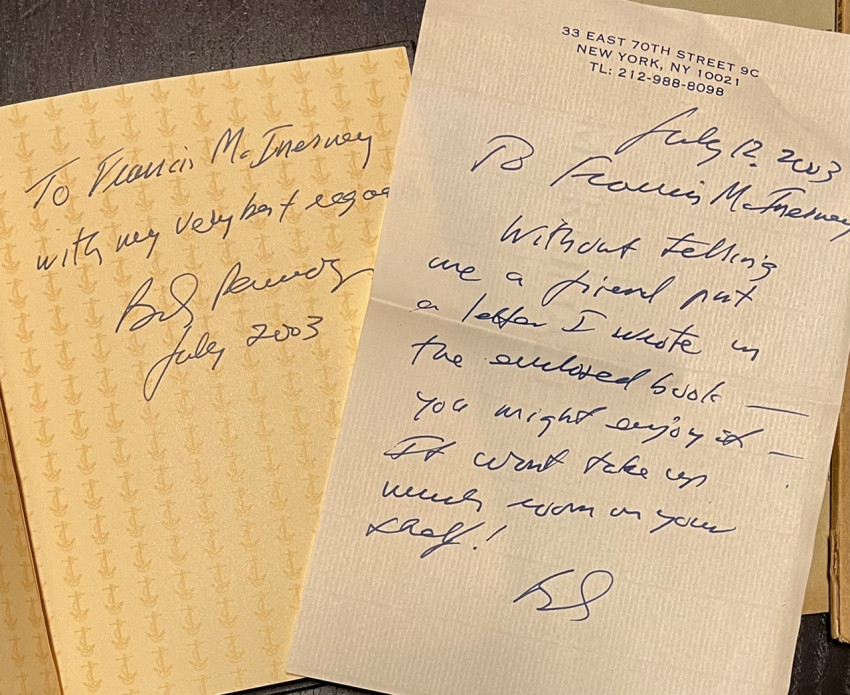 To Francis McInerney
with my very best regar
July 2003
33 EAST 70TH STREET 9C
NEW YORK, NY 10021
TL: 212-988-8098
July 12, 2003
To Francis McInerney
Without telling
me a friend put
a letter I wrote in
the enclosed book —
you might enjoy it —
It wont take up
much room on your
shelf!